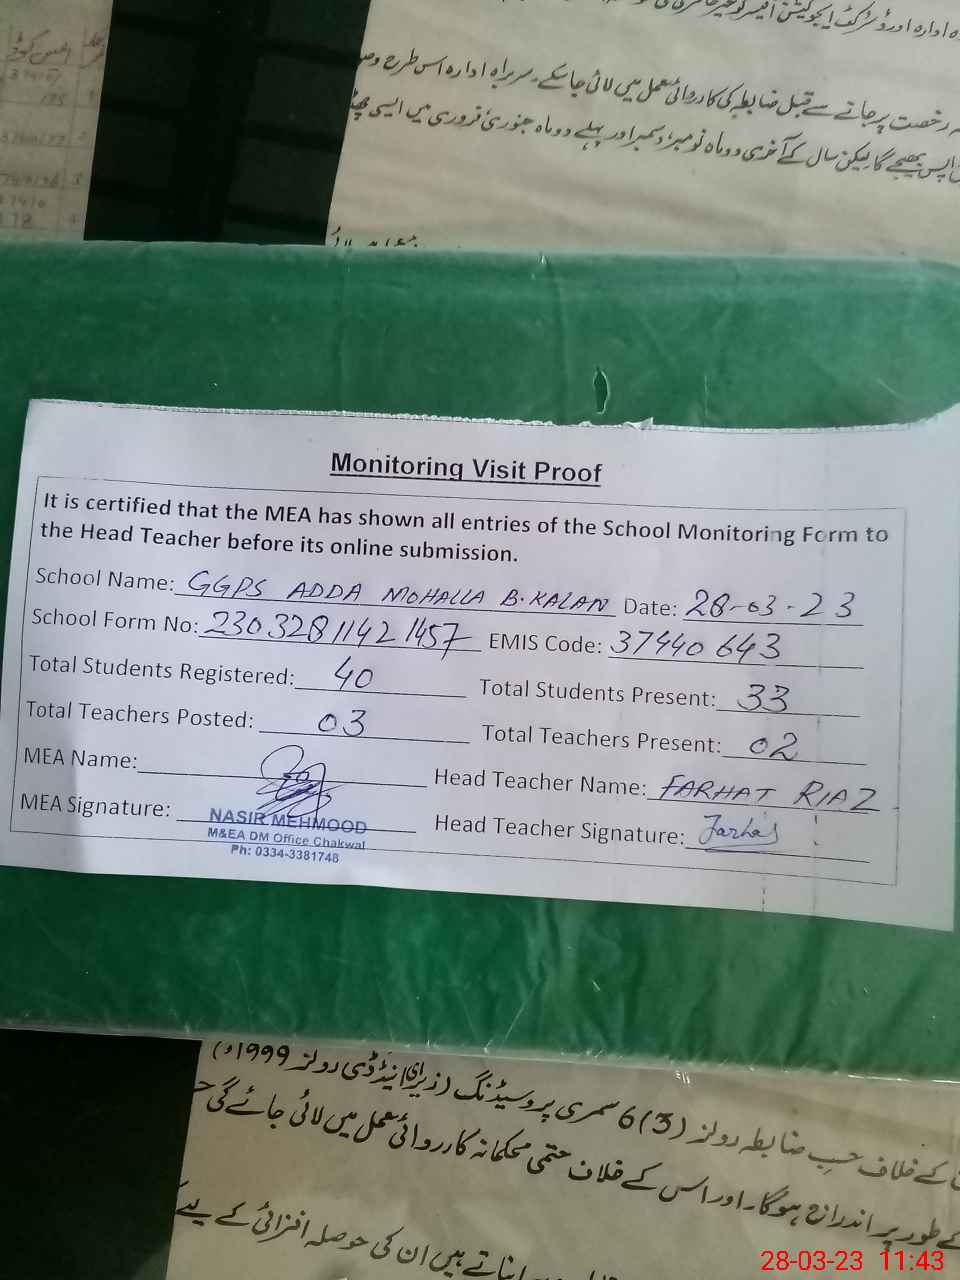 رخصت پر جانے سے قبل ضابطہ کی کاروائی عمل میں لائی جاسکے۔ سربراہ ادارہ اس طرح
واپس بھیجے گا لیکن سال کے آخری دو ماہ نومبر، دسمبر اور پہلے دو ماہ جنوری فروری میں ایسی
Monitoring Visit Proof
It is certified that the MEA has shown all entries of the School Monitoring Form to
the Head Teacher before its online submission.
School Name: GGPS ADDA MOHALLA B.KALAN Date: 28-03-23
School Form No: 23032811421457 EMIS Code: 37440643
Total Students Registered: 40 Total Students Present: 33
Total Teachers Posted: 03 Total Teachers Present: 02
MEA Name: Head Teacher Name: FARHAT RIAZ
MEA Signature: Head Teacher Signature: Farhat
NASIR MEHMOOD
M&EA DM Office Chakwal
Ph: 0334-3381748
کے خلاف حسبِ ضابطہ رولز (3) 6 سمری پروسیڈنگ (زیر ای اینڈ ڈی رولز 1999ء)
کے طور پر اندراج ہوگا۔ اور اس کے خلاف حتمی محکمانہ کارروائی عمل میں لائی جائے گی
اپناتے ہیں ان کی حوصلہ افزائی کے لیے
28-03-23 11:43